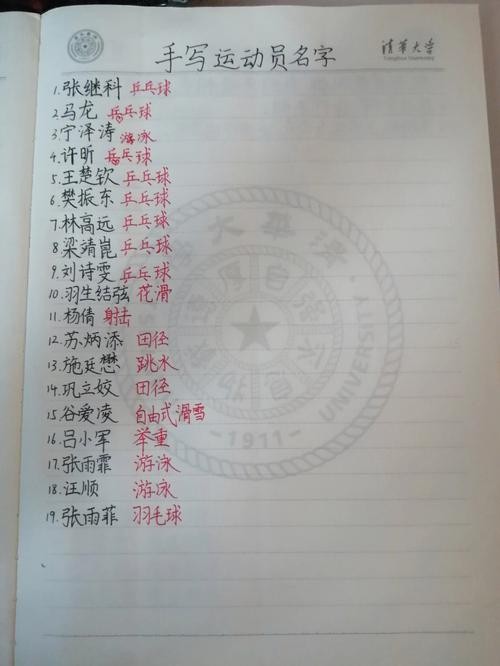 清华大学
Tsinghua University
手写运动员名字
1.张继科 乒乓球
2.马龙 乒乓球
3.宁泽涛 游泳
4.许昕 乒乓球
5.王楚钦 乒乓球
6.樊振东 乒乓球
7.林高远 乒乓球
8.梁靖崑 乒乓球
9.刘诗雯 乒乓球
10.羽生结弦 花滑
11.杨倩 射击
12.苏炳添 田径
13.施廷懋 跳水
14.巩立姣 田径
15.谷爱凌 自由式滑雪
16.吕小军 举重
17.张雨霏 游泳
18.汪顺 游泳
19.张雨菲 羽毛球
UNIVERSITY
-1911-